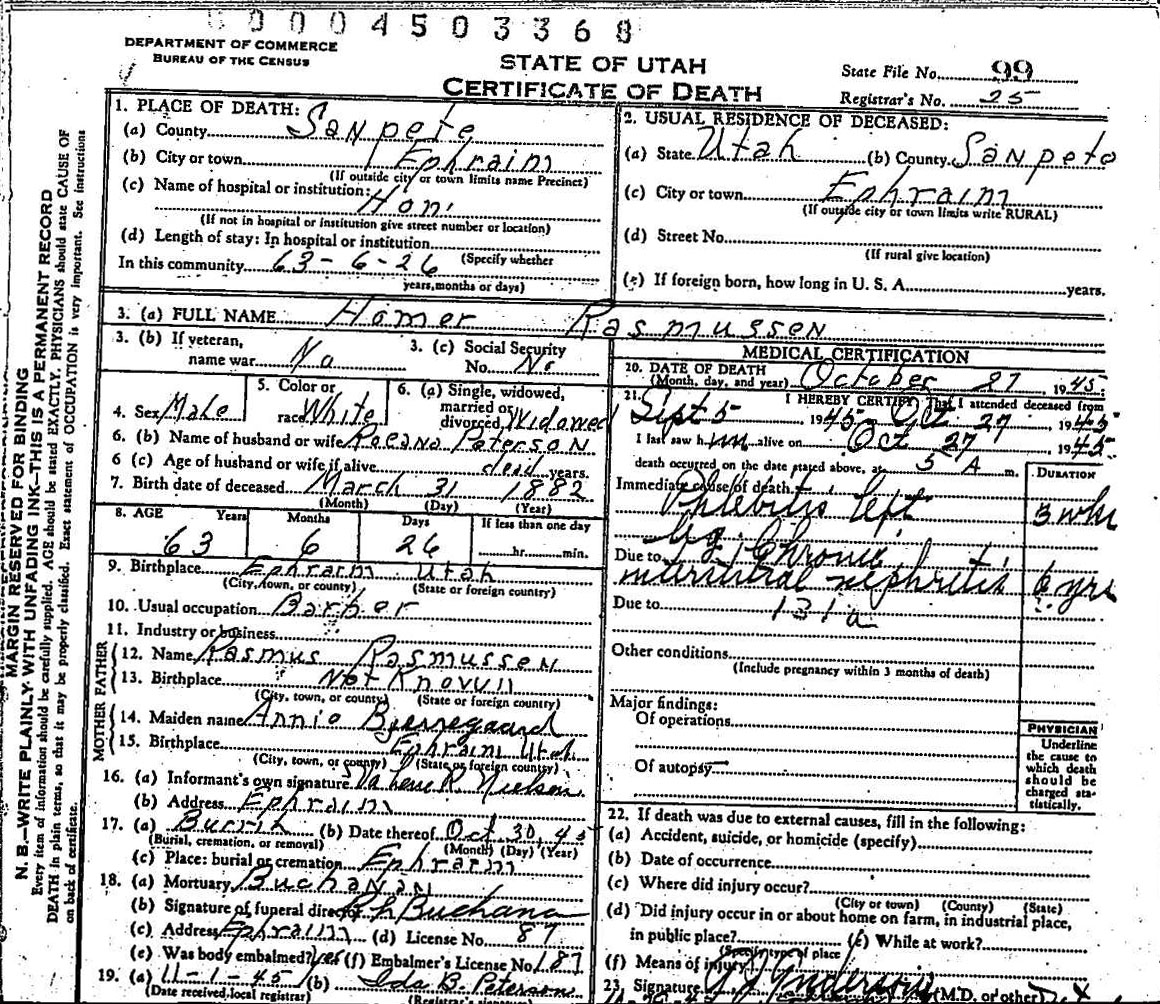 0004503368
DEPARTMENT OF COMMERCE
BUREAU OF THE CENSUS
STATE OF UTAH
CERTIFICATE OF DEATH
State File No. 99
Registrar's No. 25
MARGIN RESERVED FOR BINDING
N. B.—WRITE PLAINLY WITH UNFADING INK—THIS IS A PERMANENT RECORD
Every item of information should be carefully supplied. AGE should be stated EXACTLY. PHYSICIANS should state CAUSE OF
DEATH in plain terms, so that it may be properly classified. Exact statement of OCCUPATION is very important. See instructions
on back of certificate.
1. PLACE OF DEATH:
(a) County Sanpete
(b) City or town Ephraim
(If outside city or town limits name Precinct)
(c) Name of hospital or institution:
Hom
(If not in hospital or institution give street number or location)
(d) Length of stay: In hospital or institution
(Specify whether
In this community 63-6-26
years, months or days)
2. USUAL RESIDENCE OF DECEASED:
(a) State Utah (b) County Sanpete
(c) City or town Ephraim
(If outside city or town limits write RURAL)
(d) Street No.
(If rural give location)
(e) If foreign born, how long in U. S. A. years.
3. (a) FULL NAME Homer Rasmussen
3. (b) If veteran, name war No
3. (c) Social Security No. No
4. Sex Male
5. Color or race White
6. (a) Single, widowed, married or divorced Widowed
6. (b) Name of husband or wife Peterson
6 (c) Age of husband or wife if alive dead years.
7. Birth date of deceased March 31 1882
(Month) (Day) (Year)
8. AGE Years Months Days If less than one day
63 6 26 hr. min.
9. Birthplace Ephraim Utah
(City, town, or county) (State or foreign country)
10. Usual occupation Barber
11. Industry or business
FATHER
12. Name Rasmus Rasmussen
13. Birthplace Not Known
(City, town, or county) (State or foreign country)
MOTHER
14. Maiden name Annie Bjerregaard
15. Birthplace Ephraim Utah
(City, town, or county) (State or foreign country)
16. (a) Informant's own signature R. Nielson
(b) Address Ephraim
17. (a) Burril (b) Date thereof Oct 30, 45
(Burial, cremation, or removal) (Month) (Day) (Year)
(c) Place: burial or cremation Ephraim
18. (a) Mortuary Buchanan
(b) Signature of funeral director Buchanan
(c) Address Ephraim (d) License No. 87
(e) Was body embalmed? Yes (f) Embalmer's License No. 187
19. (a) 11-1-45 (b) Ida B. Peterson
(Date received local registrar) (Registrar's signature)
MEDICAL CERTIFICATION
20. DATE OF DEATH
(Month, day, and year) October 27 1945
21. I HEREBY CERTIFY, That I attended deceased from
Sept 5 1945 Oct 27 1945
I last saw him alive on Oct 27 1945
death occurred on the date stated above, at 5 A m.
DURATION
Immediate cause of death
Phlebitis left 3 wks
leg
Due to Chronic
interstitial nephritis 6 yrs
Due to 131a
Other conditions
(Include pregnancy within 3 months of death)
Major findings:
Of operations
Of autopsy
PHYSICIAN
Underline
the cause to
which death
should be
charged sta-
tistically.
22. If death was due to external causes, fill in the following:
(a) Accident, suicide, or homicide (specify)
(b) Date of occurrence
(c) Where did injury occur?
(City or town) (County) (State)
(d) Did injury occur in or about home on farm, in industrial place,
in public place? (e) While at work?
(Specify type of place
(f) Means of injury
23. Signature (M.D. or other)